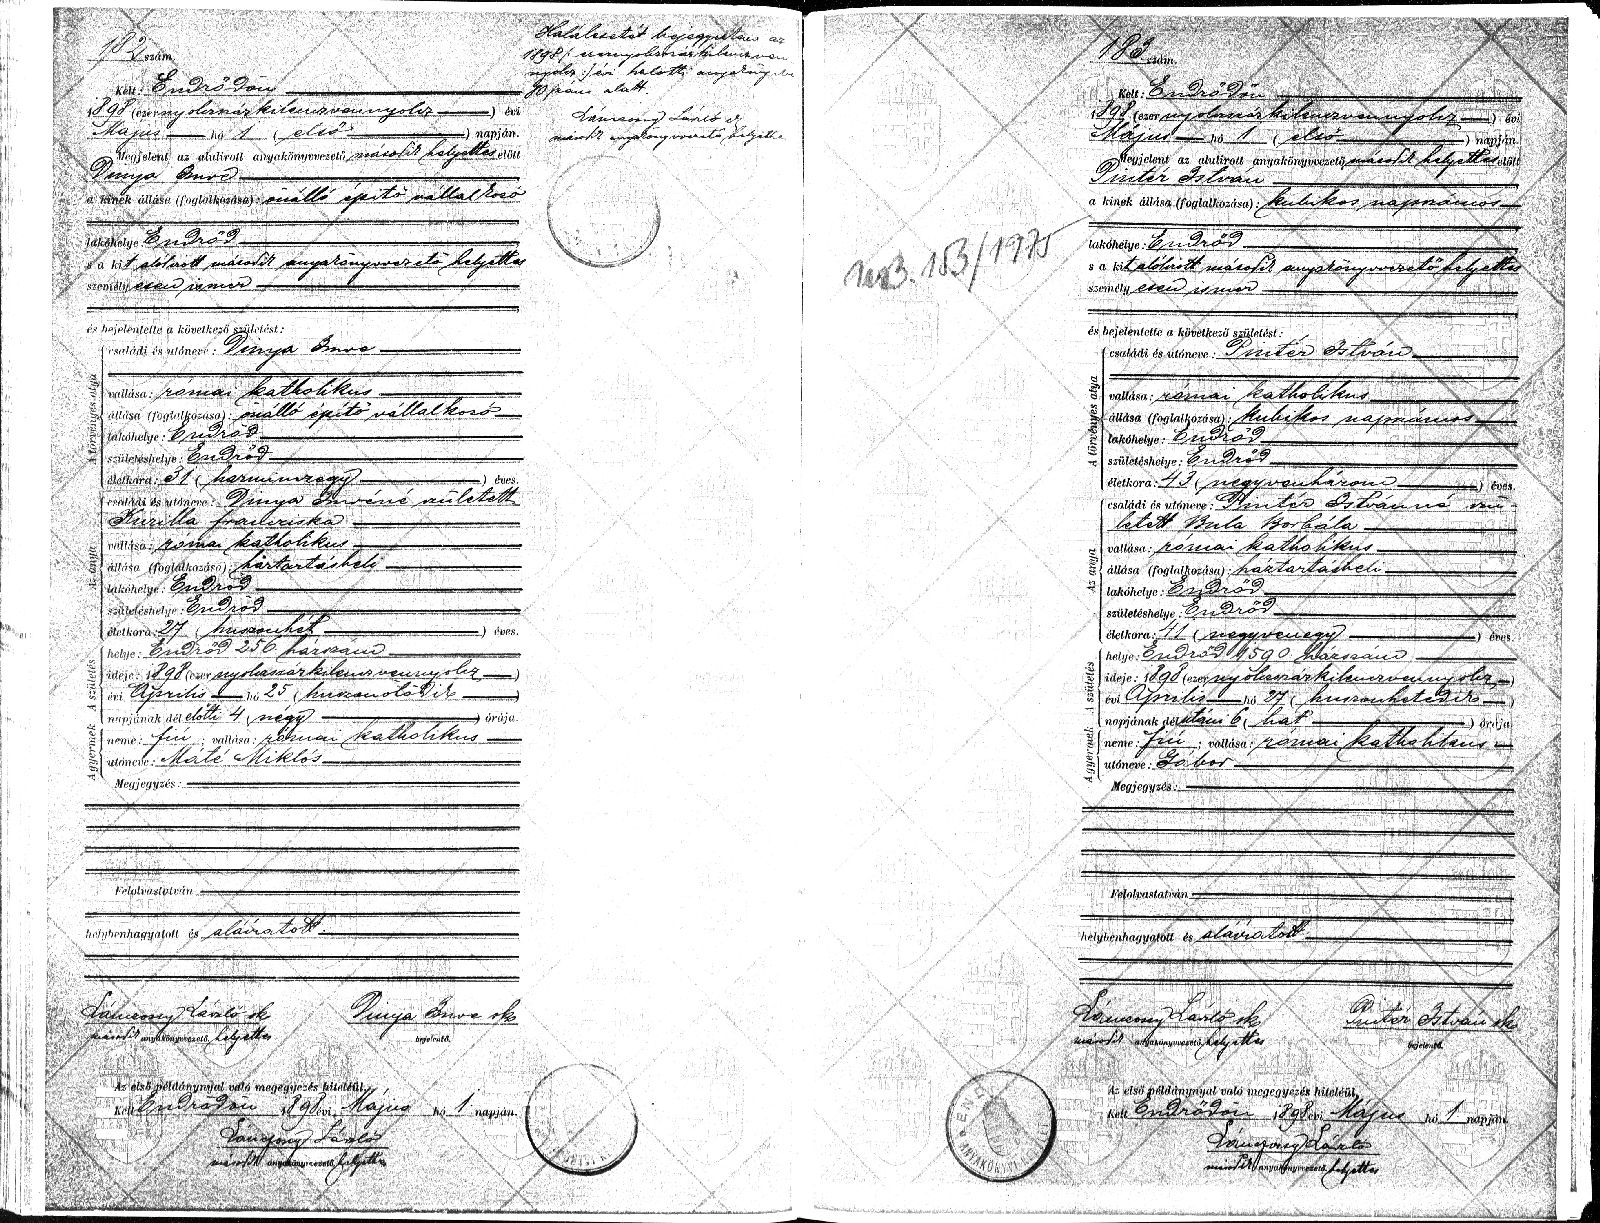 182 szám.
Kelt: Endrődön
1898 (ezernyolczszázkilenczvennyolcz) évi
Május hó 1 (első) napján.
Megjelent az alulirott anyakönyvvezető második helyettes előtt
Dinya Imre
a kinek állása (foglalkozása): önálló építő vállalkozó
lakóhelye Endrőd
s a kit alólirott második anyakönyvvezető helyettes
személyesen ismer
és bejelentette a következő születést:
A törvényes atya
családi és utóneve: Dinya Imre
vallása: római katholikus
állása (foglalkozása): önálló építő vállalkozó
lakóhelye: Endrőd
születéshelye: Endrőd
életkora: 31 (harminczegy) éves.
Az anya
családi és utóneve: Dinya Imréné született
Kurilla Francziska
vallása: római katholikus
állása (foglalkozása): háztartásbeli
lakóhelye: Endrőd
születéshelye: Endrőd
életkora: 27 (huszonhét) éves.
A születés
helye: Endrőd 256 házszám
ideje: 1898 (ezernyolczszázkilenczvennyolcz)
évi Április hó 25 (huszonötödik)
napjának dél előtti 4 (négy) órája.
A gyermek
neme: fiú; vallása: római katholikus
utóneve: Máté Miklós
Megjegyzés:
Felolvastatván
helybenhagyatott és aláiratott.
Lánczony László sk
második anyakönyvvezető helyettes
Dinya Imre sk
bejelentő.
Az első példánynyal való megegyezés hiteléül,
Kelt Endrődön 1898 évi Május hó 1 napján.
Lánczony László
második anyakönyvvezető helyettes
Halálesetét bejegyeztem az
1898 (: ezernyolczszázkilenczven
nyolcz :) évi halotti anyakönyvbe
90 szám alatt.
Lánczony László sk
másodk anyakönyvvezető helyettes
1103. 183/1975
183 szám.
Kelt: Endrődön
1898 (ezernyolczszázkilenczvennyolcz) évi
Május hó 1 (első) napján.
Megjelent az alulirott anyakönyvvezető második helyettes előtt
Pintér István
a kinek állása (foglalkozása): kubikos napszámos
lakóhelye: Endrőd
s a kit alólirott második anyakönyvvezető helyettes
személyesen ismer
és bejelentette a következő születést:
A törvényes atya
családi és utóneve: Pintér István
vallása: római katholikus
állása (foglalkozása): kubikos napszámos
lakóhelye: Endrőd
születéshelye: Endrőd
életkora: 43 (negyvenhárom) éves.
Az anya
családi és utóneve: Pintér Istvánné szü-
letett Bula Borbála
vallása: római katholikus
állása (foglalkozása): háztartásbeli
lakóhelye: Endrőd
születéshelye: Endrőd
életkora: 41 (negyvenegy) éves.
A születés
helye: Endrőd 1590 házszám
ideje: 1898 (ezernyolczszázkilenczvennyolcz)
évi Április hó 27 (huszonhetedik)
napjának dél utáni 6 (hat) órája
A gyermek
neme: fiú; vallása: római katholikus
utóneve: Gábor
Megjegyzés:
Felolvastatván
helybenhagyatott és aláiratott
Lánczony László sk
második anyakönyvvezető helyettes
Pintér István sk
bejelentő.
Az első példánynyal való megegyezés hiteléül,
Kelt Endrődön 1898 évi Május hó 1 napján.
Lánczony László
második anyakönyvvezető helyettes